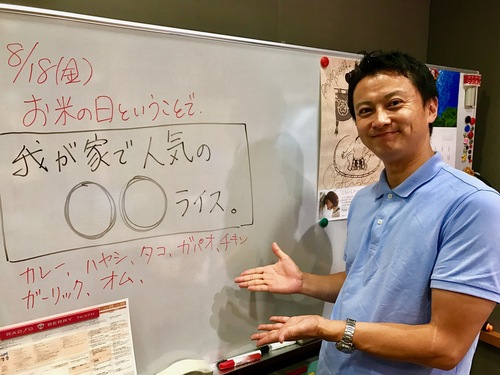 8/18(金)
お米の日ということで、
我が家で人気の
○○ライス。
カレー、ハヤシ、タコ、ガパオ、チキン
ガーリック、オム、
RADIO BERRY